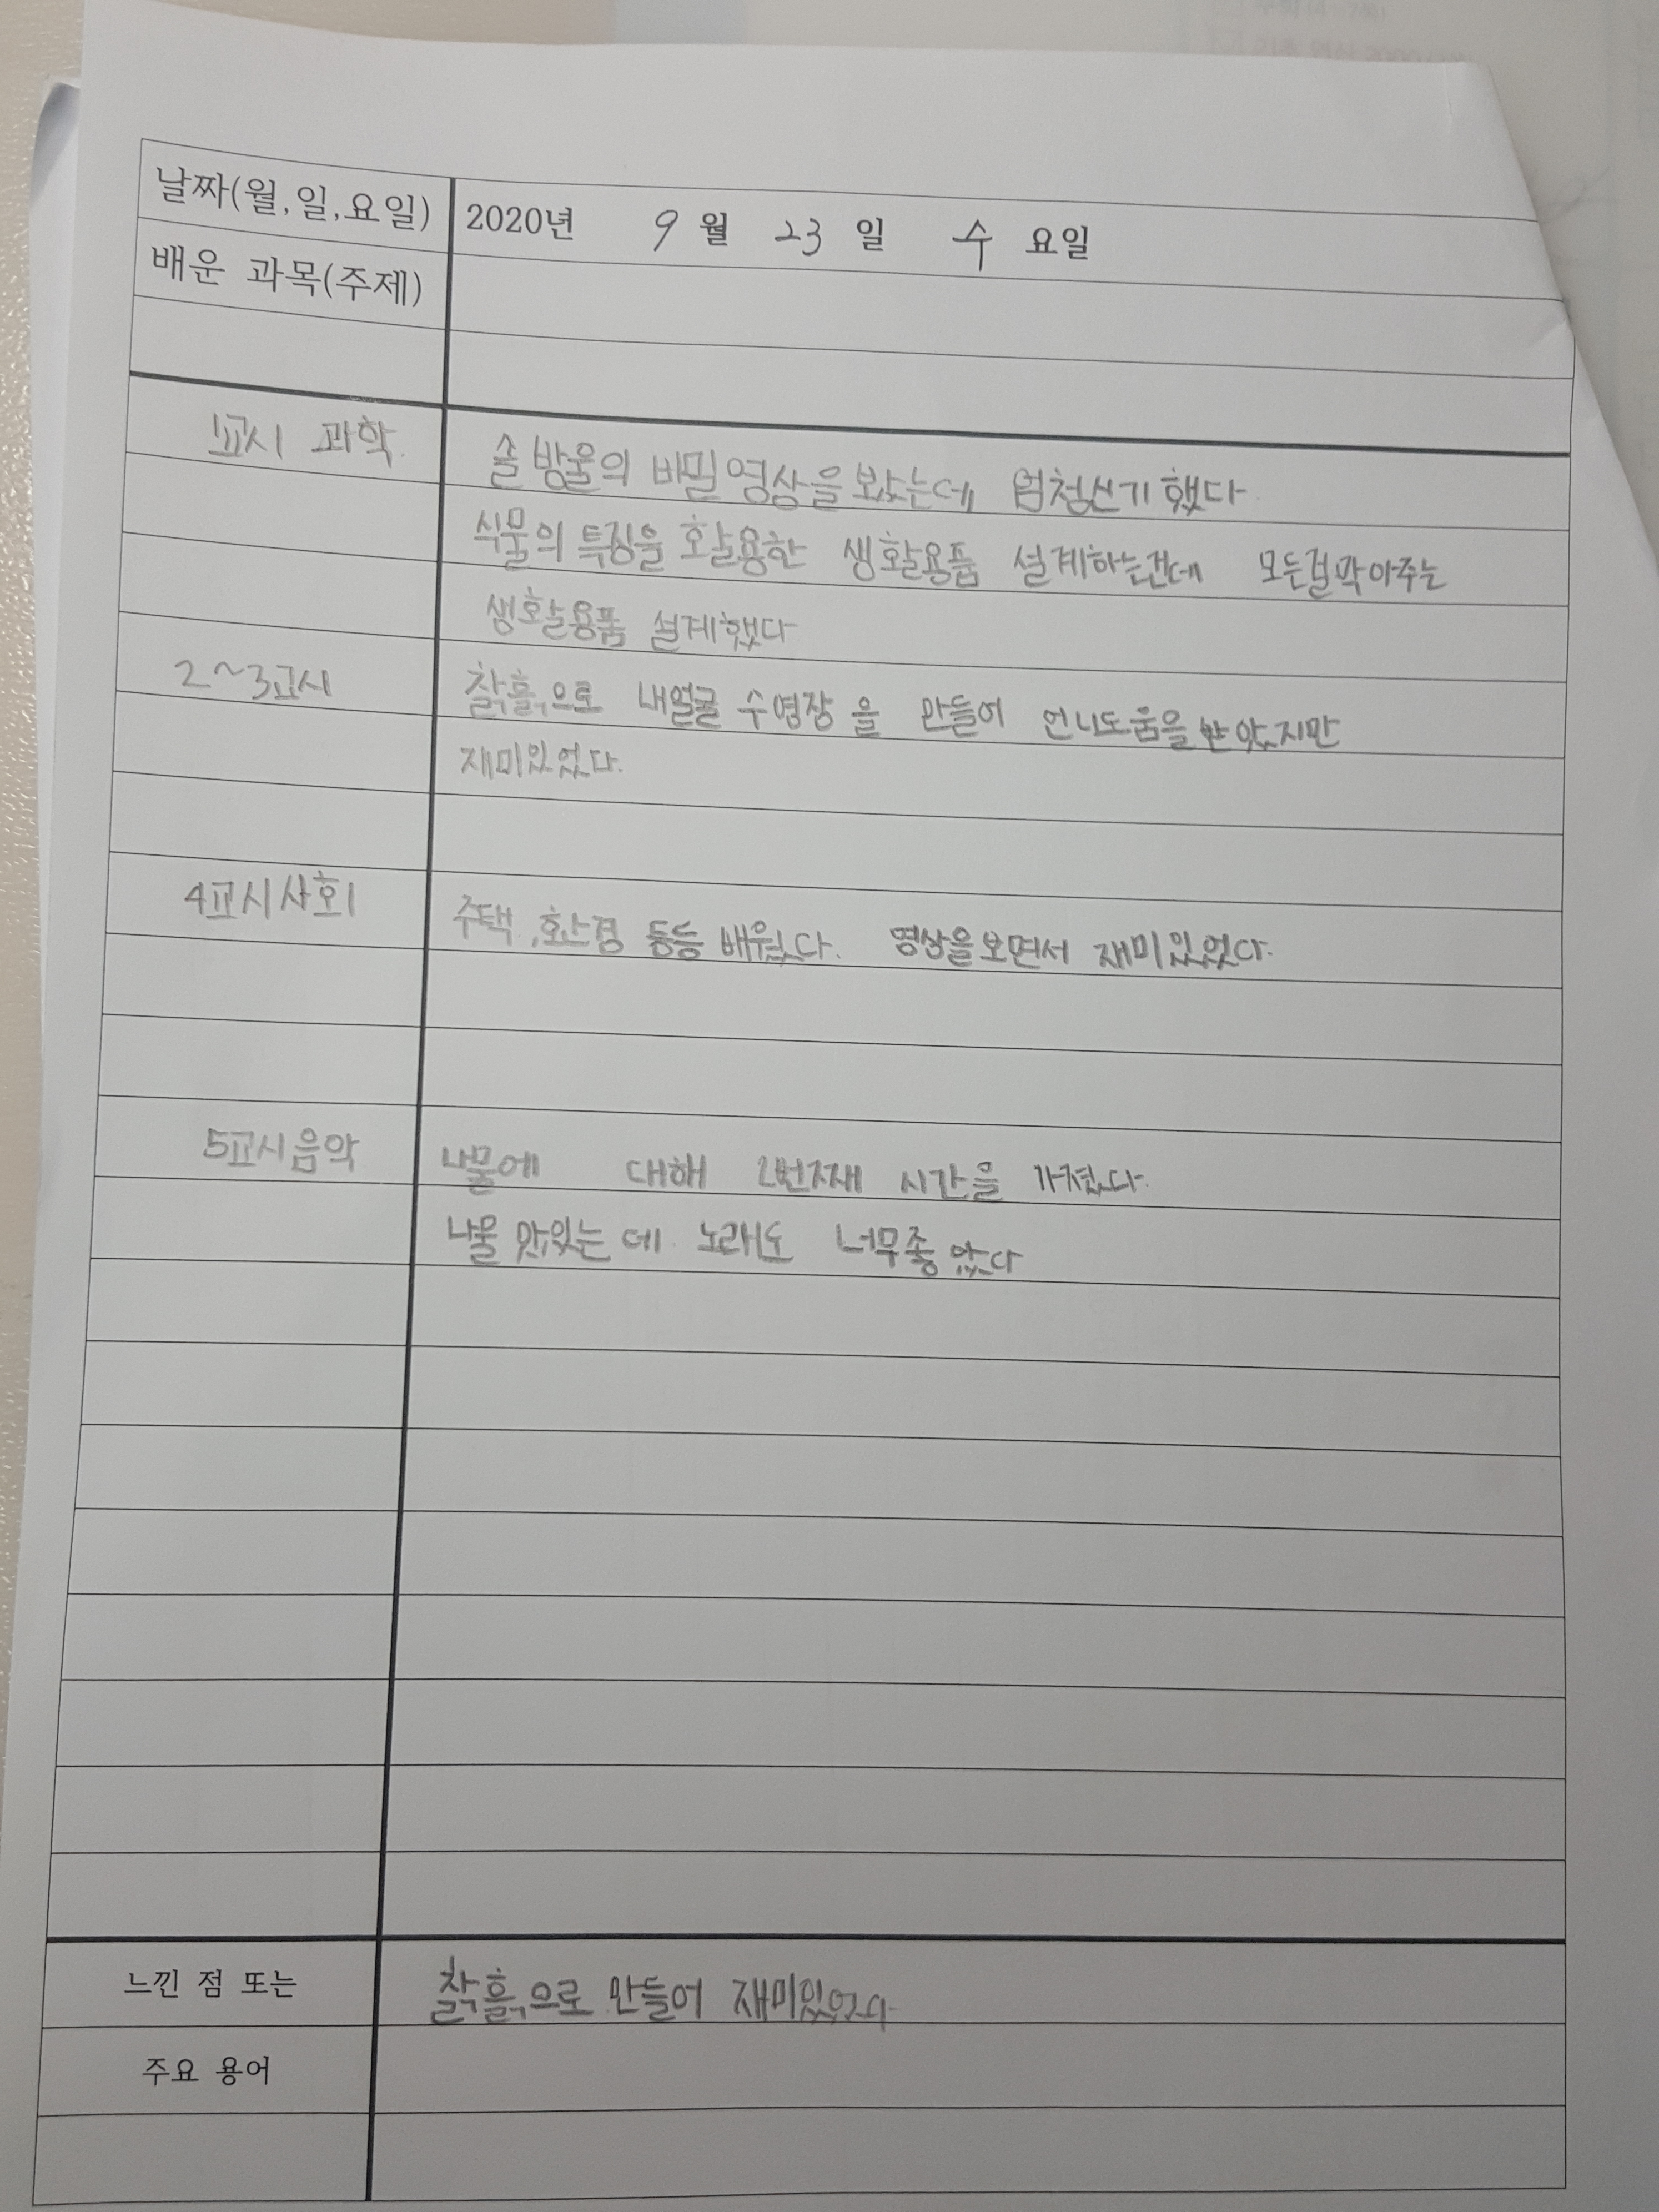 날짜(월,일,요일) 2020년 9 월 23 일 수 요일
배운 과목(주제)
1교시 과학 솔방울의 비밀영상을봤는데 엄청신기했다
식물의 특징을 활용한 생활용품 설계하는건데 모든걸막아주는
생활용품 설계했다
2~3교시 찰흙으로 내얼굴 수영장을 만들어 언니도움을받았지만
재미있었다.
4교시사회 주택,환경 등등 배웠다. 영상을보면서 재미있었다.
5교시음악 나물에 대해 2번째 시간을 가졌다.
나물 맛있는데 노래도 너무좋았다
느낀 점 또는 찰흙으로 만들어 재미있었다
주요 용어